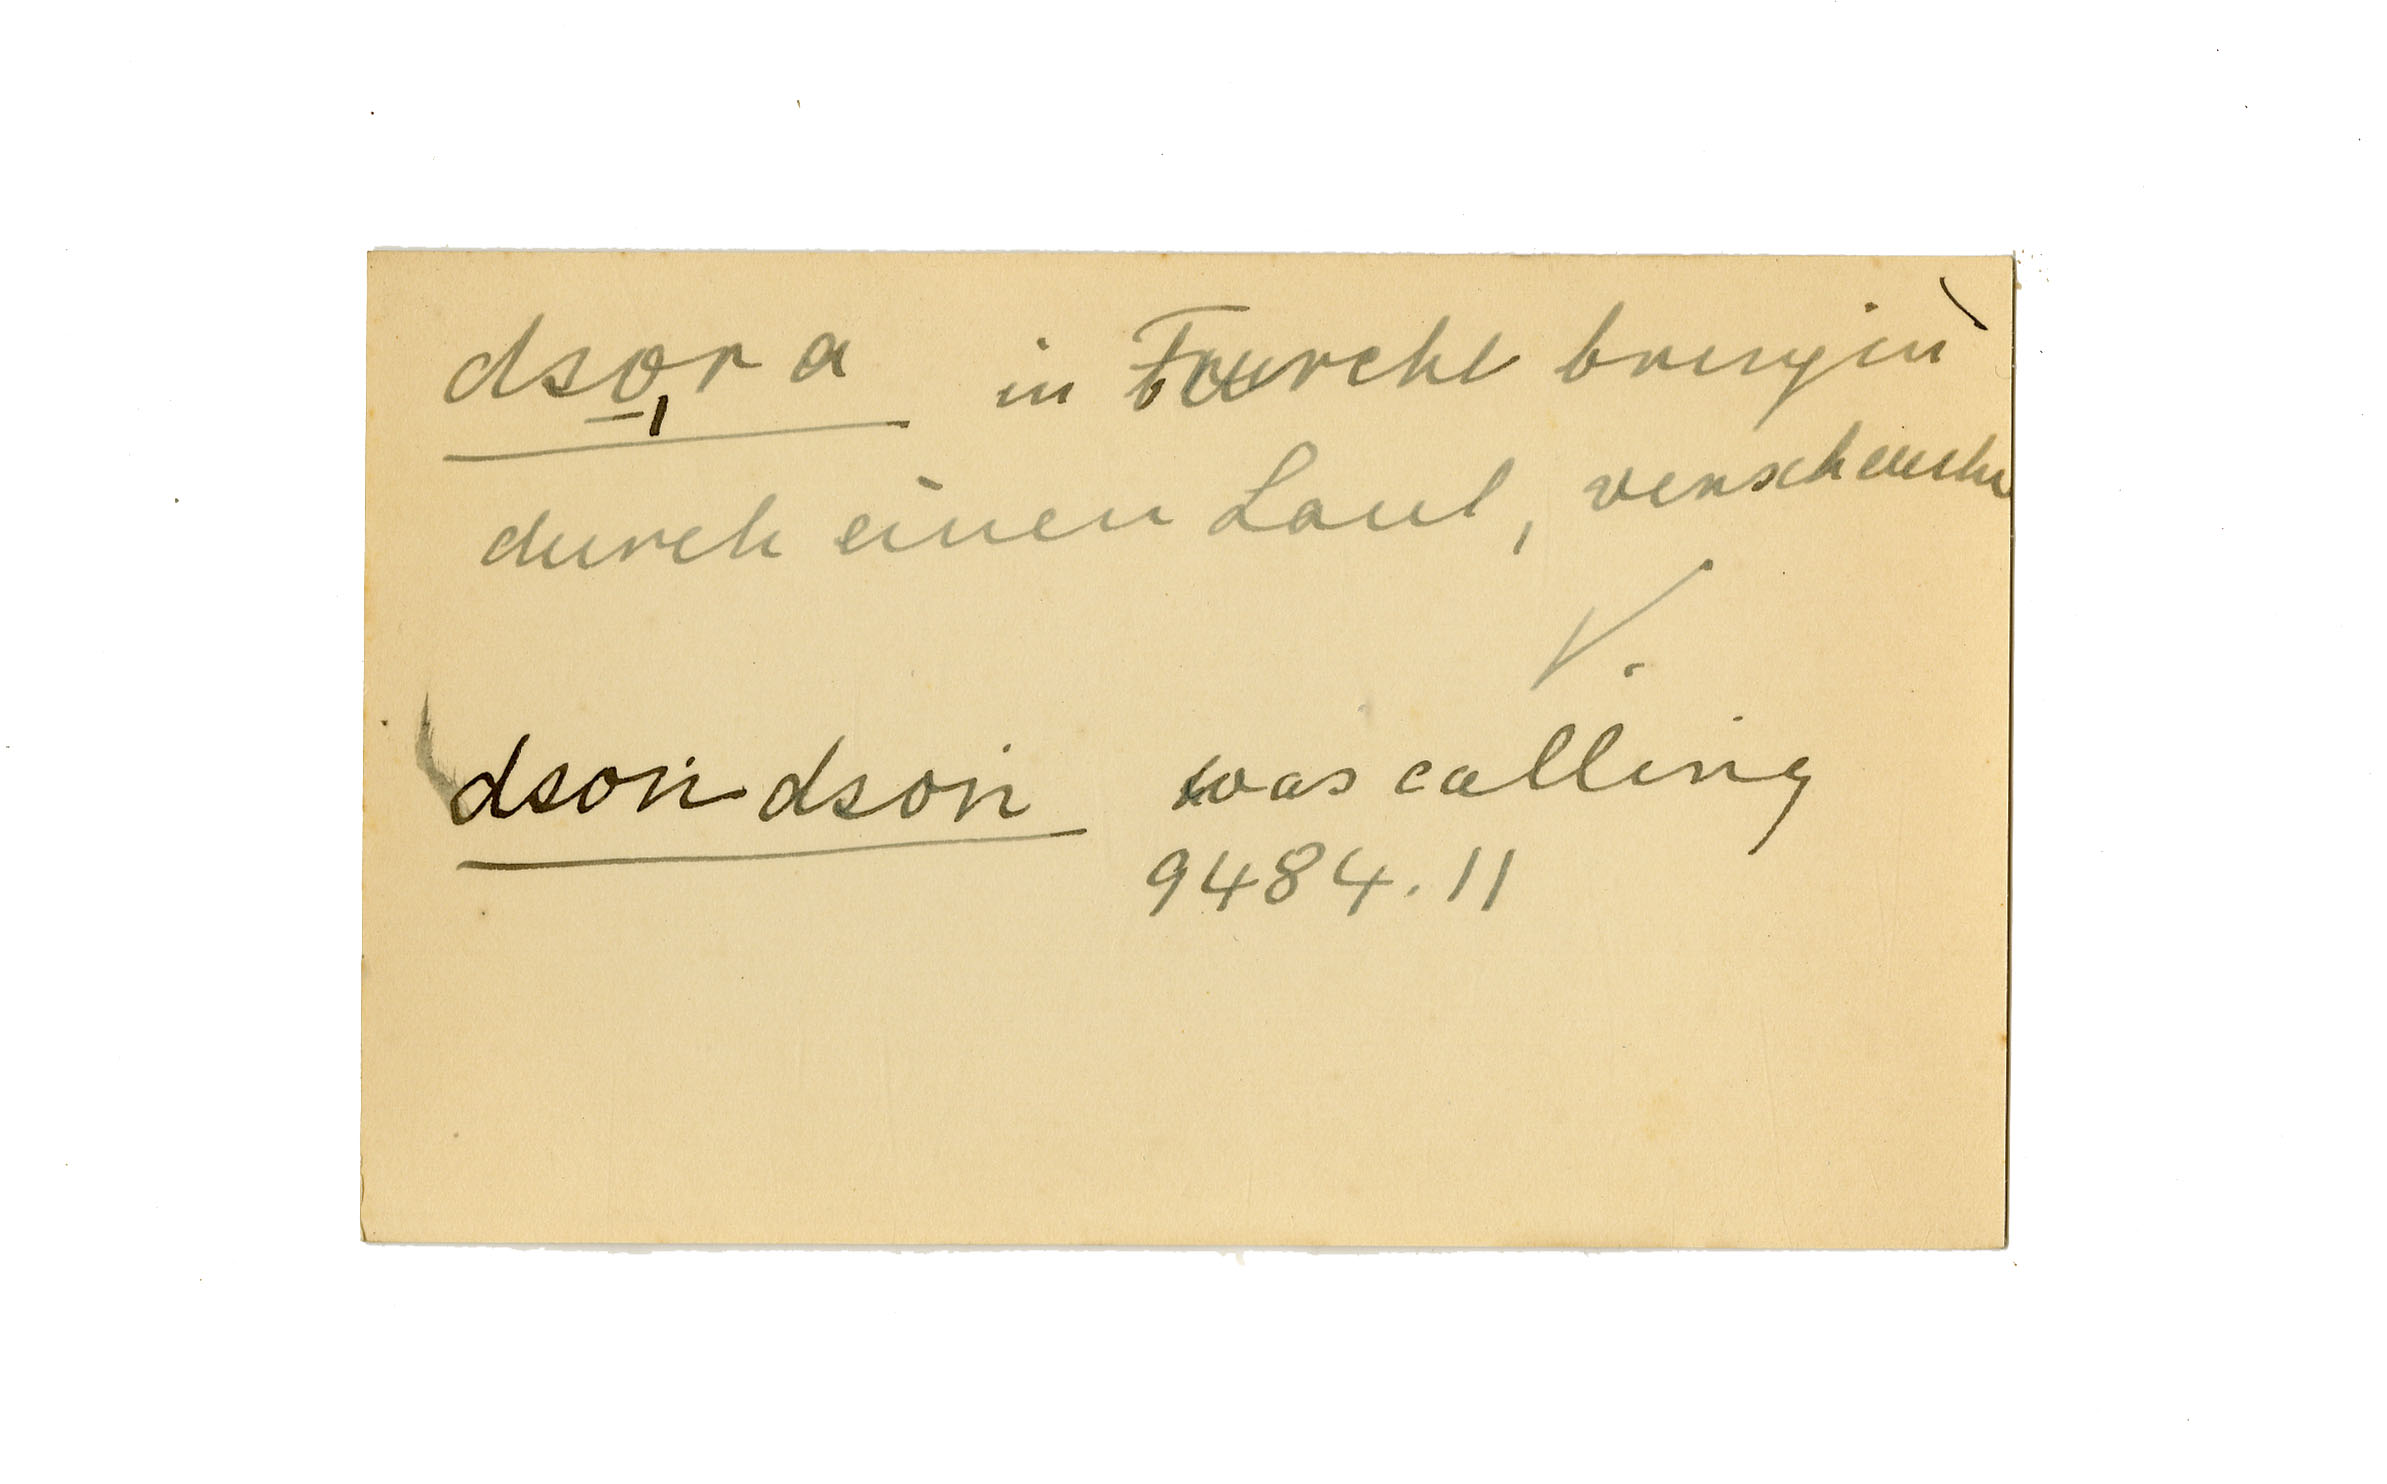 dso̱̩ra in Furcht bringen
durch einen Laut, verscheuche
V.
dsoṅ dsoṅ was calling
9484.11